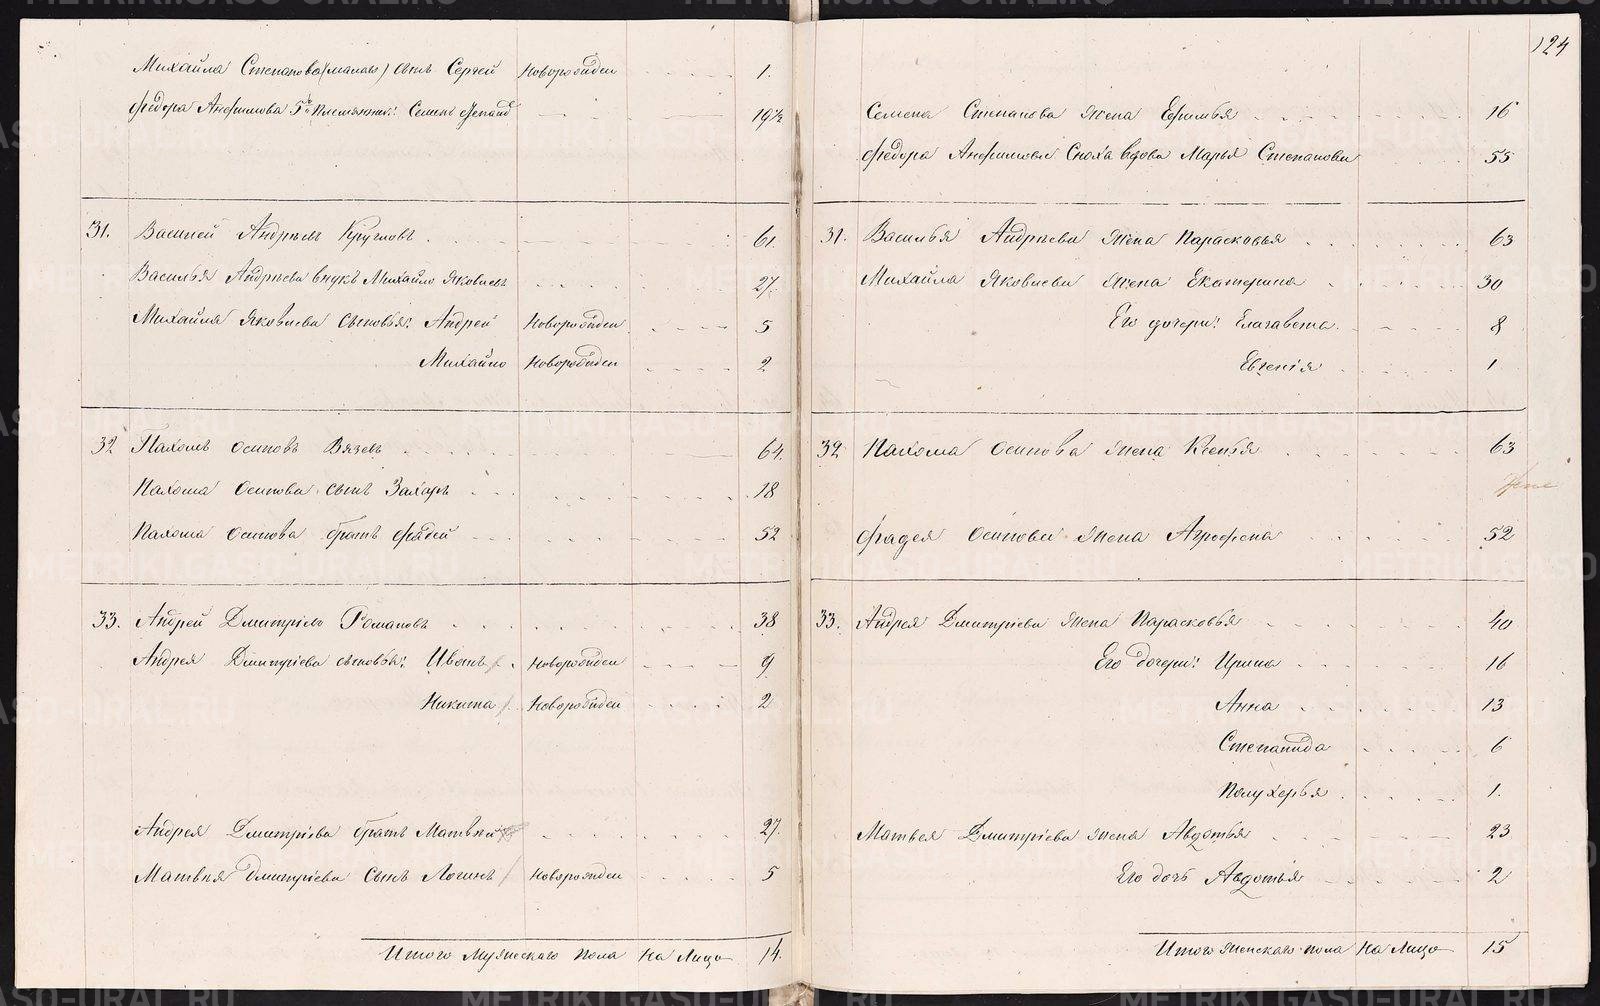 124
Михайла Степанова (малаго) сынъ Сергей Новорожден 1.
Федора Анфимова 5й Племянникъ: Семенъ 19½
31. Василей Андреевъ Кругловъ 61.
Василья Андреева внукъ Михайло Яковлевъ 27.
Михайла Яковлева сыновья: Андрей Новорожден 5
Михайло Новорожден 2
32 Пахомъ Осиповъ Вязевъ 64.
Пахома Осипова сынъ Захаръ 18
Пахома Осипова братъ Фадей 52
33. Андрей Дмитріевъ Романовъ 38
Андрея Дмитріева сыновья: Иванъ Новорожден 9
Никита Новорожден 2
Андрея Дмитріева братъ Матвей 27.
Матвея Дмитріева сынъ Логинъ Новорожден 5
Итого Мужескаго пола на Лицо 14.
Семена Степанова жена Ефимья 16
Федора Анфимова Сноха вдова Марья Степанова 55
31. Василья Андреева жена Парасковья 63
Михайла Яковлева жена Екатерина 30
Его дочери: Елизавета 8
Евгенія 1
32 Пахома Осипова жена Ксенья 63
Фадея Осипова жена Агрофена 52
33. Андрея Дмитріева жена Парасковья 40
Его дочери: Ирина 16
Анна 13
Степанида 6
Полухерья 1.
Матвея Дмитріева жена Авдотья 23
Его дочь Авдотья 2
Итого женскаго пола на Лицо 15
METRIKI.GASO-URAL.RU